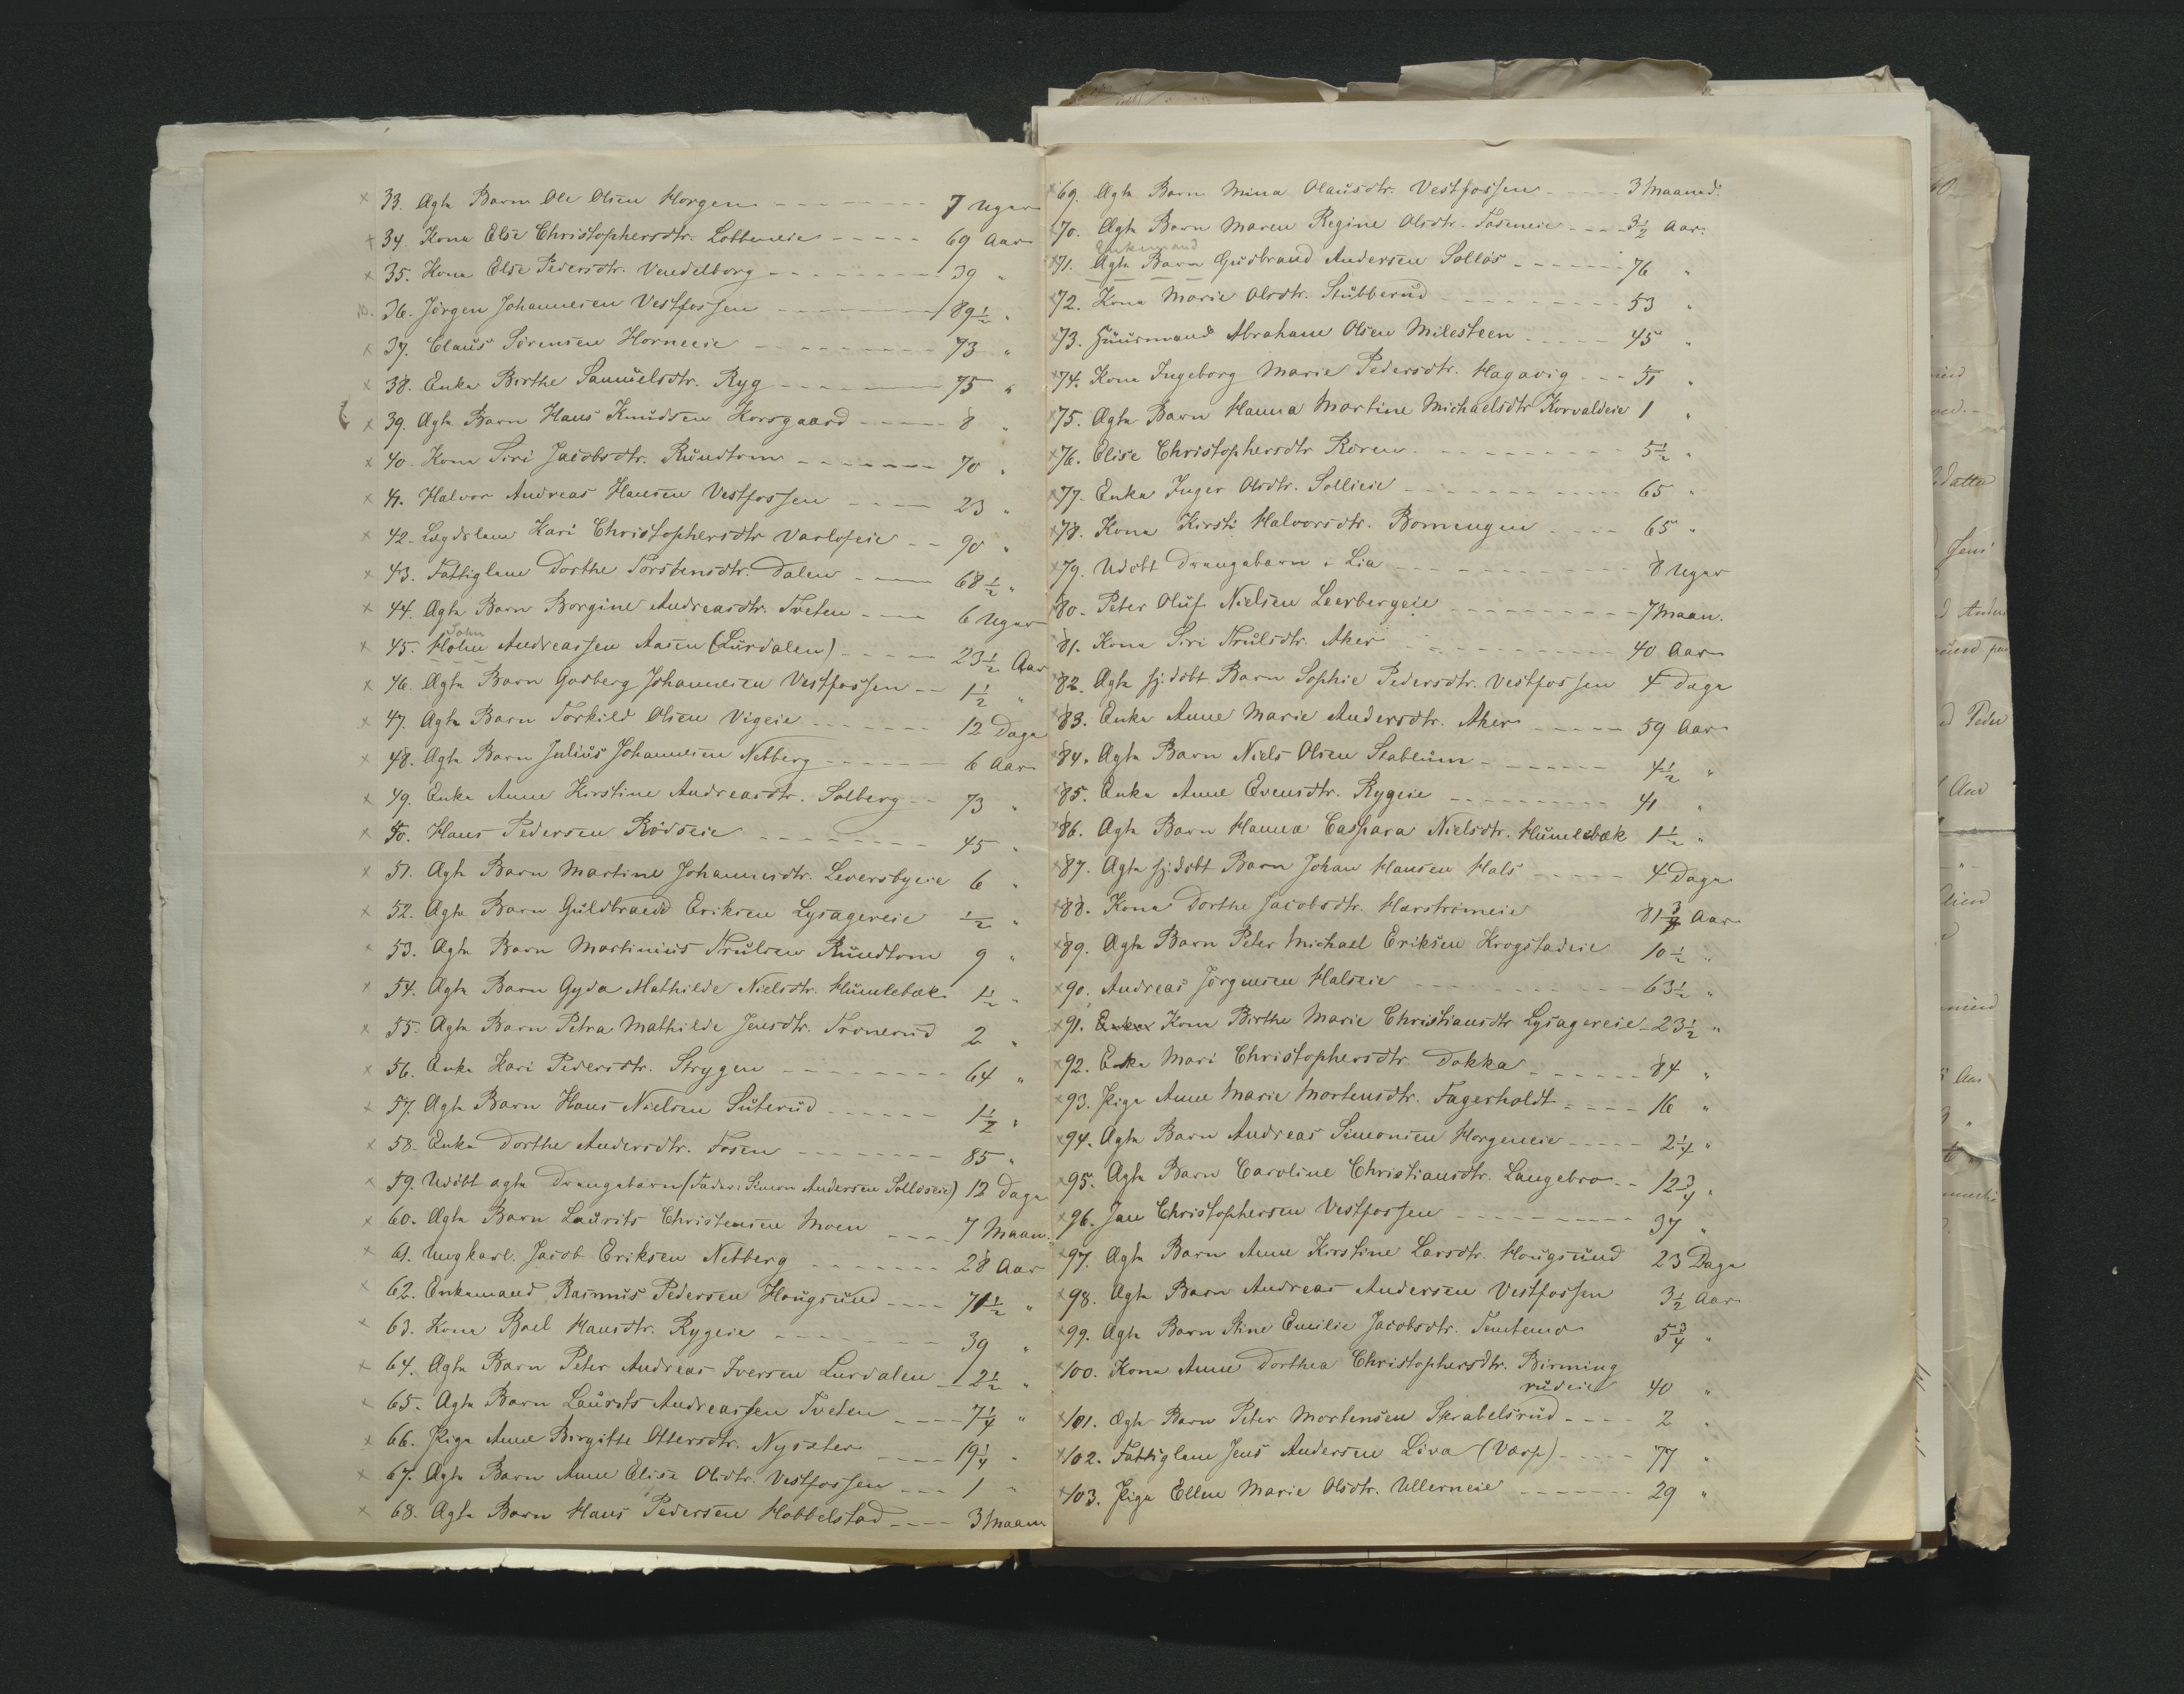 33. Ægte Barn Ole Olsen Horgen 7 Uger
34. Kone Else Christophersdtr. Lobbeneie 69 Aar
35. Kone Else Pedersdtr. Vendelborg 39 "
36. Jörgen Johannesen Vestfossen 89 1/2 "
37. Claus Sörensen Horneeie 73 "
38. Enke Birthe Samuelsdtr. Ryg 75 "
39. Ægte Barn Hans Knudsen Korsgaard 8 "
40. Kone Siri Jacobsdtr. Rundtom 70 "
41. Halvor Andreas Hansen Vestfossen 23 "
42. Lægdslem Kari Christophersdtr Varloseie 90 "
43. Fattiglem Dorthe Torstensdtr. Dalen 68 1/2 "
44. Ægte Barn Borgine Andreasdtr. Tveten 6 Uger
John
45. Hohn Andreassen Aasen (Lurdalen) 23 1/2 Aar
46. Ægte Barn Godberg Johannesen Vestfossen 1 1/2 "
47. Ægte Barn Torkild Olsen Vigeie 12 Dage
48. Ægte Barn Julius Johannesen Nebberg 6 Aar
49. Enke Anne Kirstine Andreasdtr. Solberg 73 "
50. Hans Pedersen Rödseie 45 "
51. Ægte Barn Martine Johannesdtr. Leversbyeie 6 "
52. Ægte Barn Guldbrand Eriksen Lysagereie 1/2 "
53. Ægte Barn Martinius Trulsen Rundtom 9 "
54. Ægte Barn Gyda Mathilde Nielsdtr. Humlebæk 1 1/2 "
55. Ægte Barn Petra Mathilde Jensdtr. Tronerud 2 "
56. Enke Kari Pedersdtr. Strygen 64 "
57. Ægte Barn Hans Nielsen Suterud 1 1/2 "
58. Enke Dorthe Andersdtr. Fosen 85 "
59. Udöbt ægte Drengebarn (Fader: Simon Andersen Sollöseie) 12 Dage
60. Ægte Barn Laurits Christensen Moen 7 Maan.
61. Ungkarl. Jacob Eriksen Nebberg 28 Aar
62. Enkemand Rasmus Pedersen Hougsund 71 1/2 "
63. Kone Boel Hansdtr. Rygeie 39 "
64. Ægte Barn Peter Andreas Iversen Lurdalen 2 1/2 "
65. Ægte Barn Laurits Andreassen Tveten 7 1/4 "
66. Pige Anne Birgitte Ottersdtr. Nysæter 19 1/4 "
67. Ægte Barn Anne Elise Olsdtr. Vestfossen 1 "
68. Ægte Barn Hans Pedersen Hobbelstad 3 Maan
69. Ægte Barn Mina Olausdtr. Vestfossen 3 Maaned.
70. Ægte Barn Maren Regine Olsdtr. Foseneie 3 1/2 Aar.
Enkemand
71. Ægte Barn Gudbrand Andersen Sollös 76 "
72. Kone Marie Olsdtr. Stubberud 53 "
73. Huusmand Abraham Olsen Milesteen 45 "
74. Kone Ingeborg Marie Pedersdtr. Hagavig 51 "
75. Ægte Barn Hanna Martine Michaelsdtr Korvaldeie 1 "
76. Elise Christophersdtr Roren 5 1/2 "
77. Enke Inger Olsdtr. Sollieie 65 "
78. Kone Kirsti Halvorsdtr. Bomengen 65 "
79. Udöbt Drengebarn i Lia 8 Uger
80. Peter Oluf Nielsen Leerbergeie 7 Maan.
81. Kone Siri Trulsdtr. Aker 40 Aar
82. Ægte hj.döbt Barn Sophie Pedersdtr. Vestfossen 4 Dage
83. Enke Anne Marie Andersdtr. Aker 59 Aar
84. Ægte Barn Niels Olsen Stablum 4 1/2 "
85. Enke Anne Evensdtr. Rygeie 41 "
86. Ægte Barn Hanna Caspara Nielsdtr. Humlebæk 1 1/2 "
87. Ægte hj.döbt Barn Johan Hansen Hals 4 Dage
88. Kone Dorthe Jacobsdtr. Harströmeie 81 3/4 Aar
89. Ægte Barn Peter Michael Eriksen Krogstadeie 10 1/2 "
90. Andreas Jörgensen Halseie 63 1/2 "
91. Enke Kone Birthe Marie Christiansdtr Lysagereie 23 1/2 "
92. Enke Mari Christophersdtr. Dokka 84 "
93. Pige Anne Marie Mortensdtr. Fagerholdt 16 "
94. Ægte Barn Andreas Simonsen Horgeneie 2 1/4 "
95. Ægte Barn Caroline Christiansdtr. Langebro 12 3/4 "
96. Jan Christophersen Vestfossen 37 "
97. Ægte Barn Anne Kirstine Larsdtr. Hougsund 23 Dage
98. Ægte Barn Andreas Andersen Vestfossen 3 1/2 Aar
99. Ægte Barn Stine Emilie Jacobsdtr. Temtemo 5 3/4 "
100. Kone Anne Dorthea Christophersdtr. Birming
rudeie 40 "
101. Ægte Barn Peter Mortensen Skrabelsrud 2 "
102. Fattiglem Jens Andersen Liva (Værp) 77 "
103. Pige Ellen Marie Olsdtr. Ullerneie 29 "